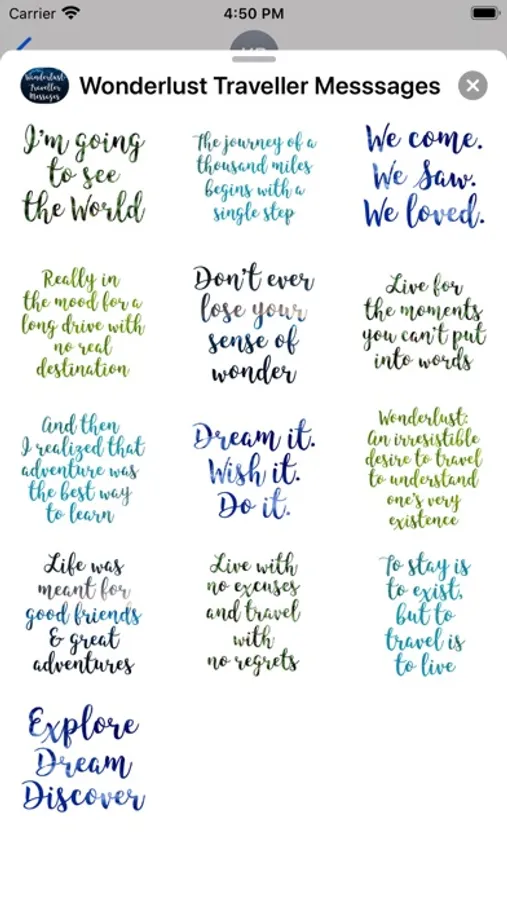 Carrier 4:50 PM
Wonderlust Traveller Messsages
Wonderlust:
Traveller
Messages
I'm going
to see
the World
The journey of a
thousand miles
begins with a
single step
We come.
We Saw.
We loved.
Really in
the mood for a
long drive with
no real
destination
Don't ever
lose your
sense of
wonder
Live for
the moments
you can't put
into words
And then
I realized that
adventure was
the best way
to learn
Dream it.
Wish it.
Do it.
Wonderlust:
An irresistible
desire to travel
to understand
one's very
existence
Life was
meant for
good friends
& great
adventures
Live with
no excuses
and travel
with
no regrets
To stay is
to exist,
but to
travel is
to live
Explore
Dream
Discover